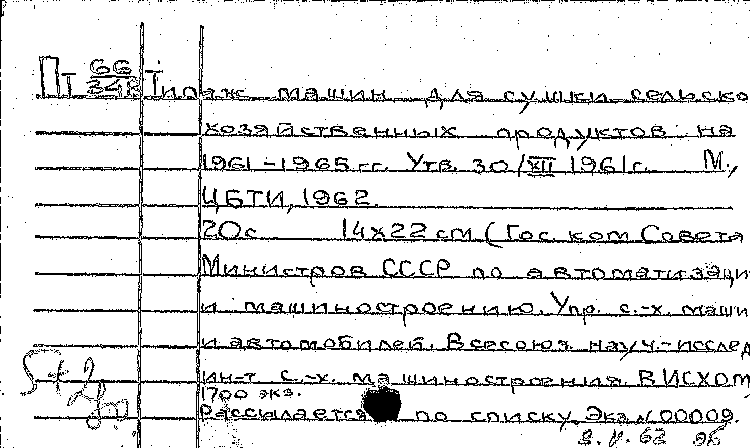 Пт 66/348 Типаж машин для сушки сельско
хозяйственных продуктов на
1961-1965 гг. Утв. 30/XII 1961г. М.,
ЦБТИ, 1962.
20с 14х22 см (Гос. ком. Совета
Министров СССР по автоматизаци
и машиностроению. Упр. с.-х. маши
и автомобилей. Всесоюз. науч.-исслед
ин-т с.-х. машиностроения ВИСХОМ
1700 экз.
Рассылается по списку. Экз. N 00009.